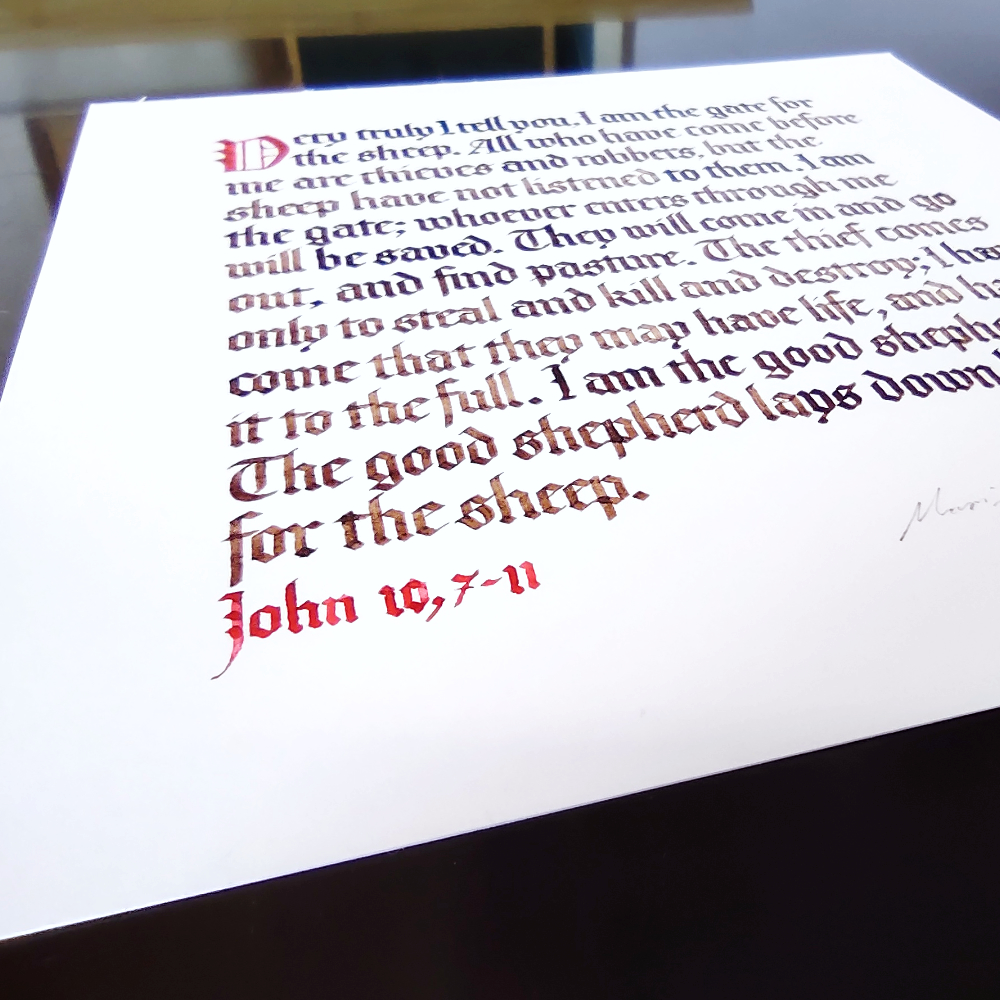 Very truly I tell you, I am the gate for
the sheep. All who have come before
me are thieves and robbers, but the
sheep have not listened to them. I am
the gate; whoever enters through me
will be saved. They will come in and go
out, and find pasture. The thief comes
only to steal and kill and destroy; I ha
come that they may have life, and ha
it to the full. I am the good sheph
The good shepherd lays down
for the sheep.
John 10,7-11